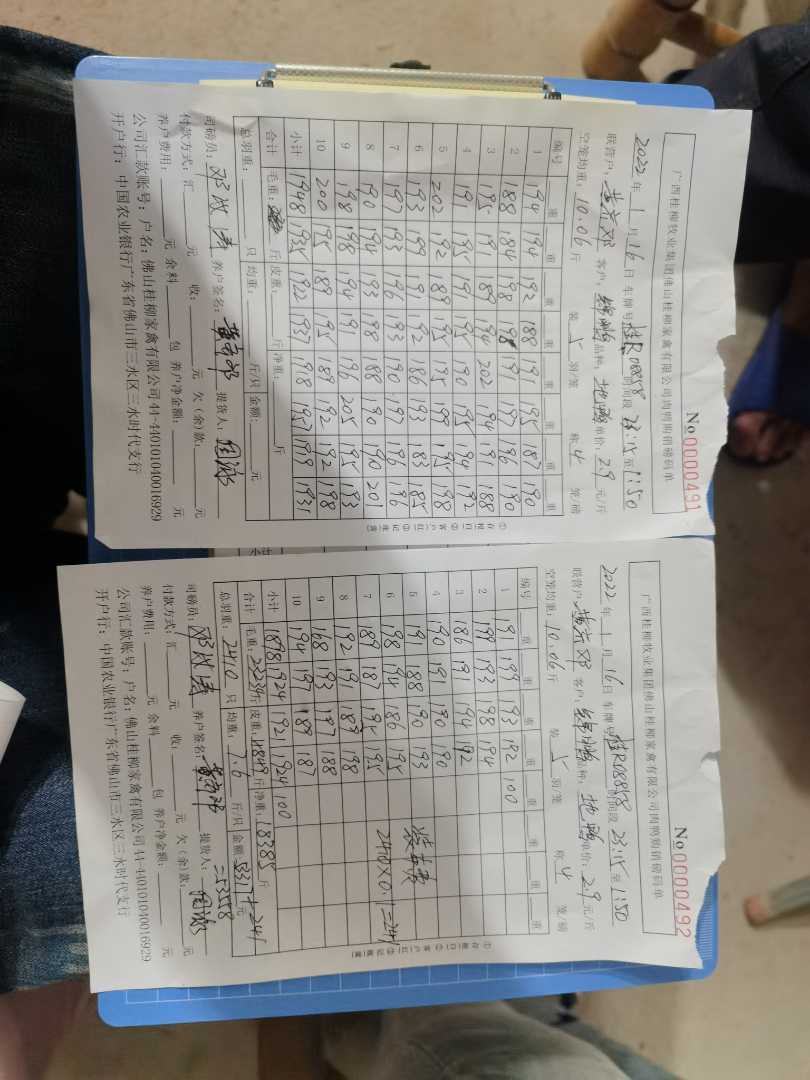 广西桂柳牧业集团佛山桂柳家禽有限公司肉鸭购销磅码单
No 0000491
2022 年 1 月 16 日 车牌号 桂R08858 时间段 23:15 至 1:50
联营户: 黄六邓 客户: 品种: 地鸭 单价: 2.9 元/斤
空笼均重: 10.06 斤 装 5 羽/笼 称 4 笼/磅
编号 重 重 重 重 重 重 重 重
1 194 194 192 188 191 195 187 190
2 188 184 198 198 191 197 196 190
3 195 191 189 194 202 194 191 188
4 191 195 191 191 190 195 194 192
5 202 192 189 195 195 198 195 198
6 193 199 191 192 186 193 183 185
7 197 193 196 193 190 197 196 196
8 190 194 193 188 188 190 190 201
9 198 198 194 191 196 205 195 193
10 200 195 189 195 189 192 192 198
小计 1948 1935 1922 1937 1918 1957 1919 1931
合计 毛重: 斤 皮重: 斤 净重: 斤
总羽重: 只 均重: 斤/只 金额: 元
司磅员: 邓成寿 养户签名: 黄六邓 提货人:
付款方式: 汇 元 收: 元 欠(余)款: 元
养户费用: 元 余料 包 养户净金额: 元
公司汇款账号: 户名: 佛山桂柳家禽有限公司 44-440101040016929
开户行: 中国农业银行广东省佛山市三水区三水时代支行
广西桂柳牧业集团佛山桂柳家禽有限公司肉鸭购销磅码单
No 0000492
2022 年 1 月 16 日 车牌号 桂R08858 时间段 23:15 至 1:50
联营户: 黄六邓 客户: 品种: 地鸭 单价: 2.9 元/斤
空笼均重: 10.06 斤 装 5 羽/笼 称 4 笼/磅
编号 重 重 重 重 重 重 重 重
1 191 199 193 182 100
2 199 193 198 194
3 186 191 194 192
4 190 191 190 190
5 191 188 190 193 装车费
6 198 194 186 195 2410×0.1=241
7 189 187 195 195
8 192 191 189 198
9 168 193 197 188
10 194 197 189 187
小计 1898 1924 1921 1924 100
合计 毛重: 23234 斤 皮重: 4849 斤 净重: 18385 斤
总羽重: 2410 只 均重: 7.6 斤/只 金额: 53317+241 元
=53558
司磅员: 邓成寿 养户签名: 黄六邓 提货人:
付款方式: 汇 元 收: 元 欠(余)款: 元
养户费用: 元 余料 包 养户净金额: 元
公司汇款账号: 户名: 佛山桂柳家禽有限公司 44-440101040016929
开户行: 中国农业银行广东省佛山市三水区三水时代支行